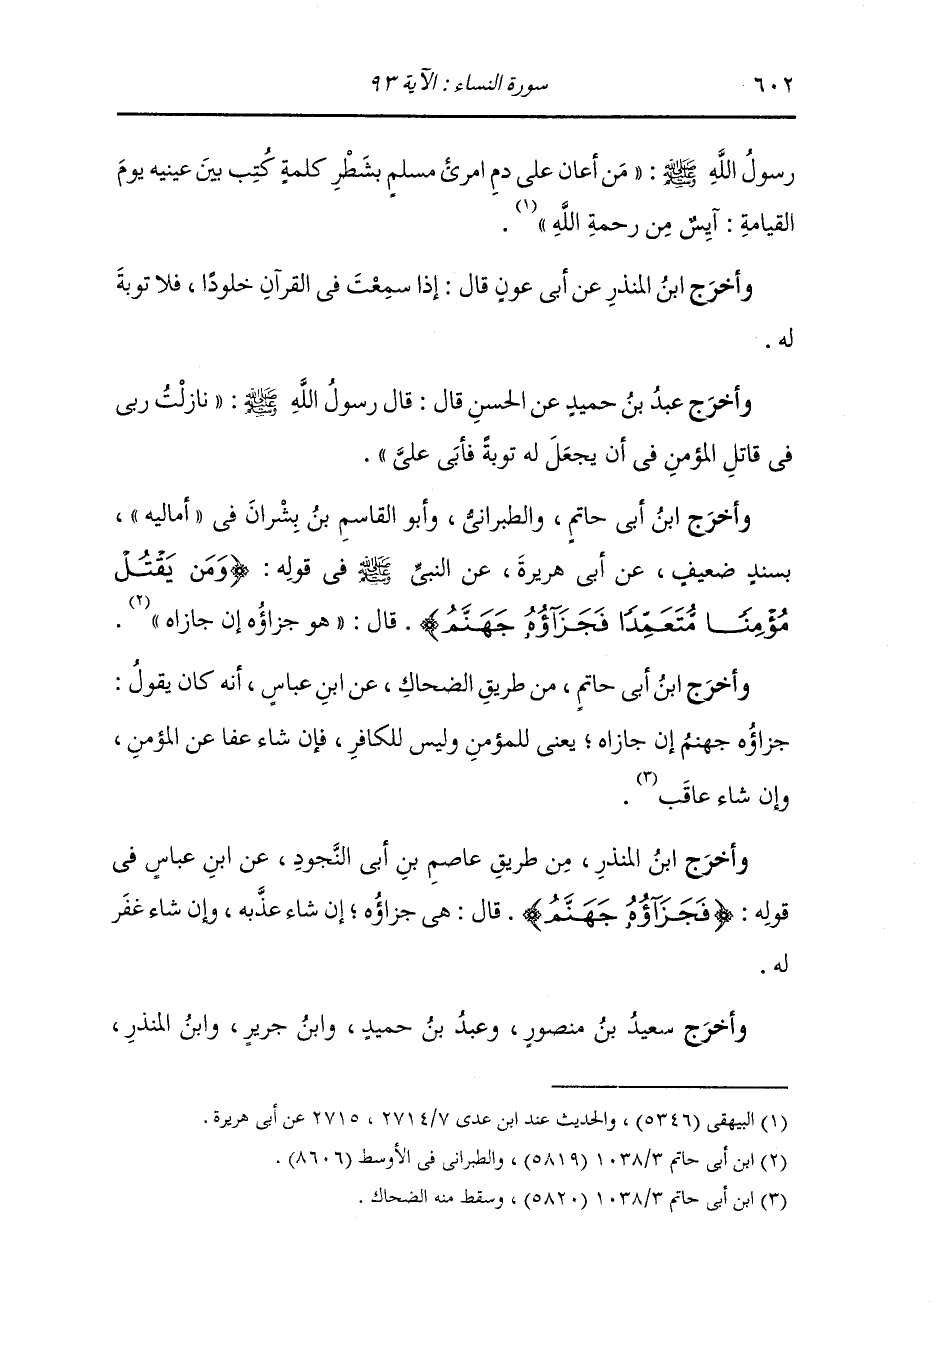 ٦٠٢ سورة النساء : الآية ٩٣
رسولُ اللَّهِ ﷺ : « مَن أعان على دمِ امرئٍ مسلمٍ بشَطْرِ كلمةٍ كُتِب بينَ عينيه يومَ
القيامةِ : آيِسٌ مِن رحمةِ اللَّهِ »(١) .
وأخرَج ابنُ المنذرِ عن أبى عونٍ قال : إذا سمِعْتَ فى القرآنِ خلودًا ، فلا توبةَ
له .
وأخرَج عبدُ بنُ حميدٍ عن الحسنِ قال : قال رسولُ اللَّهِ ﷺ : « نازلْتُ ربى
فى قاتلِ المؤمنِ فى أن يجعَلَ له توبةً فأبَى علىَّ » .
وأخرَج ابنُ أبى حاتمٍ ، والطبرانىُّ ، وأبو القاسمِ بنُ بِشْرانَ فى « أماليه » ،
بسندٍ ضعيفٍ ، عن أبى هريرةَ ، عن النبىِّ ﷺ فى قولِه : ﴿وَمَن يَقْتُلْ
مُؤْمِنًا مُّتَعَمِّدًا فَجَزَآؤُهُۥ جَهَنَّمُ﴾ . قال : « هو جزاؤُه إن جازاه »(٢) .
وأخرَج ابنُ أبى حاتمٍ ، من طريقِ الضحاكِ ، عن ابنِ عباسٍ ، أنه كان يقولُ :
جزاؤُه جهنمُ إن جازاه ؛ يعنى للمؤمنِ وليس للكافرِ ، فإن شاء عفا عن المؤمنِ ،
وإن شاء عاقَب(٣) .
وأخرَج ابنُ المنذرِ ، مِن طريقِ عاصمِ بنِ أبى النَّجودِ ، عن ابنِ عباسٍ فى
قولِه : ﴿فَجَزَآؤُهُۥ جَهَنَّمُ﴾ . قال : هى جزاؤُه ؛ إن شاء عذَّبه ، وإن شاء غفَر
له .
وأخرَج سعيدُ بنُ منصورٍ ، وعبدُ بنُ حميدٍ ، وابنُ جريرٍ ، وابنُ المنذرِ ،
(١) البيهقى (٥٣٤٦) ، والحديث عند ابن عدى ٢٧١٤/٧ ، ٢٧١٥ عن أبى هريرة .
(٢) ابن أبى حاتم ١٠٣٨/٣ (٥٨١٩) ، والطبرانى فى الأوسط (٨٦٠٦) .
(٣) ابن أبى حاتم ١٠٣٨/٣ (٥٨٢٠) ، وسقط منه الضحاك .